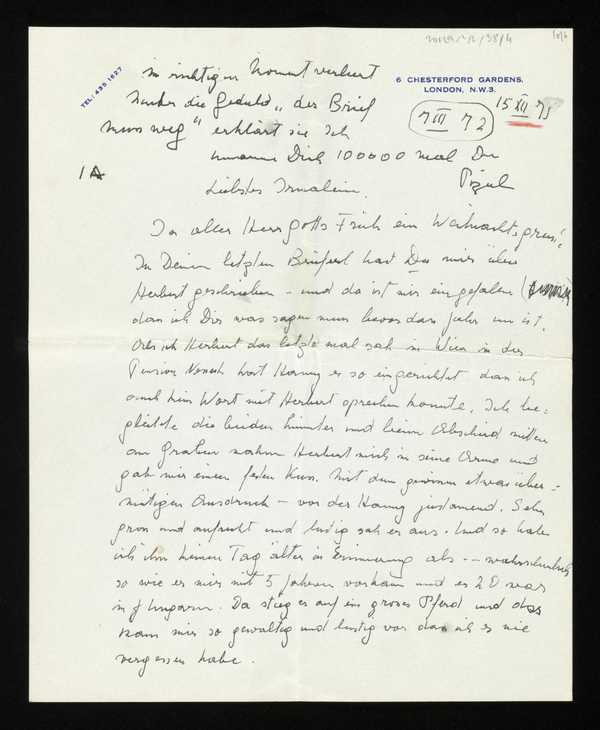 TEL: 435 1627
6 CHESTERFORD GARDENS.
LONDON, N.W.3.
15 XII 71
7 III 72
1A
im richtigen Moment verliert
die Geduld „der Brief
muss weg“ erklärt sie Ich
umarme Dich 100000 mal Du
Liebstes Irmalein.
In aller Herr Gotts Früh ein Weihnachtsgruss!
In Deinem letzten Brieferl hast Du mir über
Herbert geschrieben – und da ist mir eingefallen
dass ich Dir was sagen muss bevor das Jahr um ist.
Als ich Herbert das letzte mal sah in Wien in der
Pension Nossek hat es so eingerichtet dass ich
auch kein Wort mit Herbert sprechen konnte. Ich be=
gleitete die beiden hinunter und beim Abschied mitten
am Graben nahm Herbert mich in seine Arme und
gab mir einen festen Kuss. Mit dem gewissen etwas über=
mütigen Ausdruck – vor der justament. Sehr
gross und aufrecht und lustig sah er aus. Und so habe
ich ihn keinen Tag älter in Erinnerung als -- wahrscheinlich
so wie er mir mit 5 Jahren vorkam und er 20 war
in Ungarn. Da stieg er auf ein grosses Pferd und das
kam mir so gewaltig und lustig vor dass ich es nie
vergessen habe.